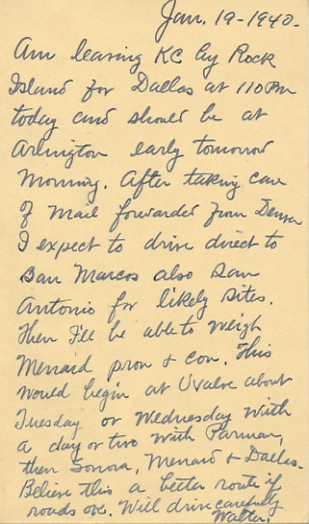 Jan. 19-1940.
Am leaving KC by Rock
Island for Dallas at 110 PM
today and should be at
Arlington early tomorrow
Morning. After taking care
of Mail forwarded from Denver
I expect to drive direct to
San Marcos also San
Antonio for likely sites.
Then I'll be able to weigh
Menard pron + con. This
would begin at Uvalve about
Tuesday or Wednesday with
a day or two with Parman,
then Sonora, Menard + Dallas.
Believe this a better route if
roads ox. Will drive carefully
Walter.